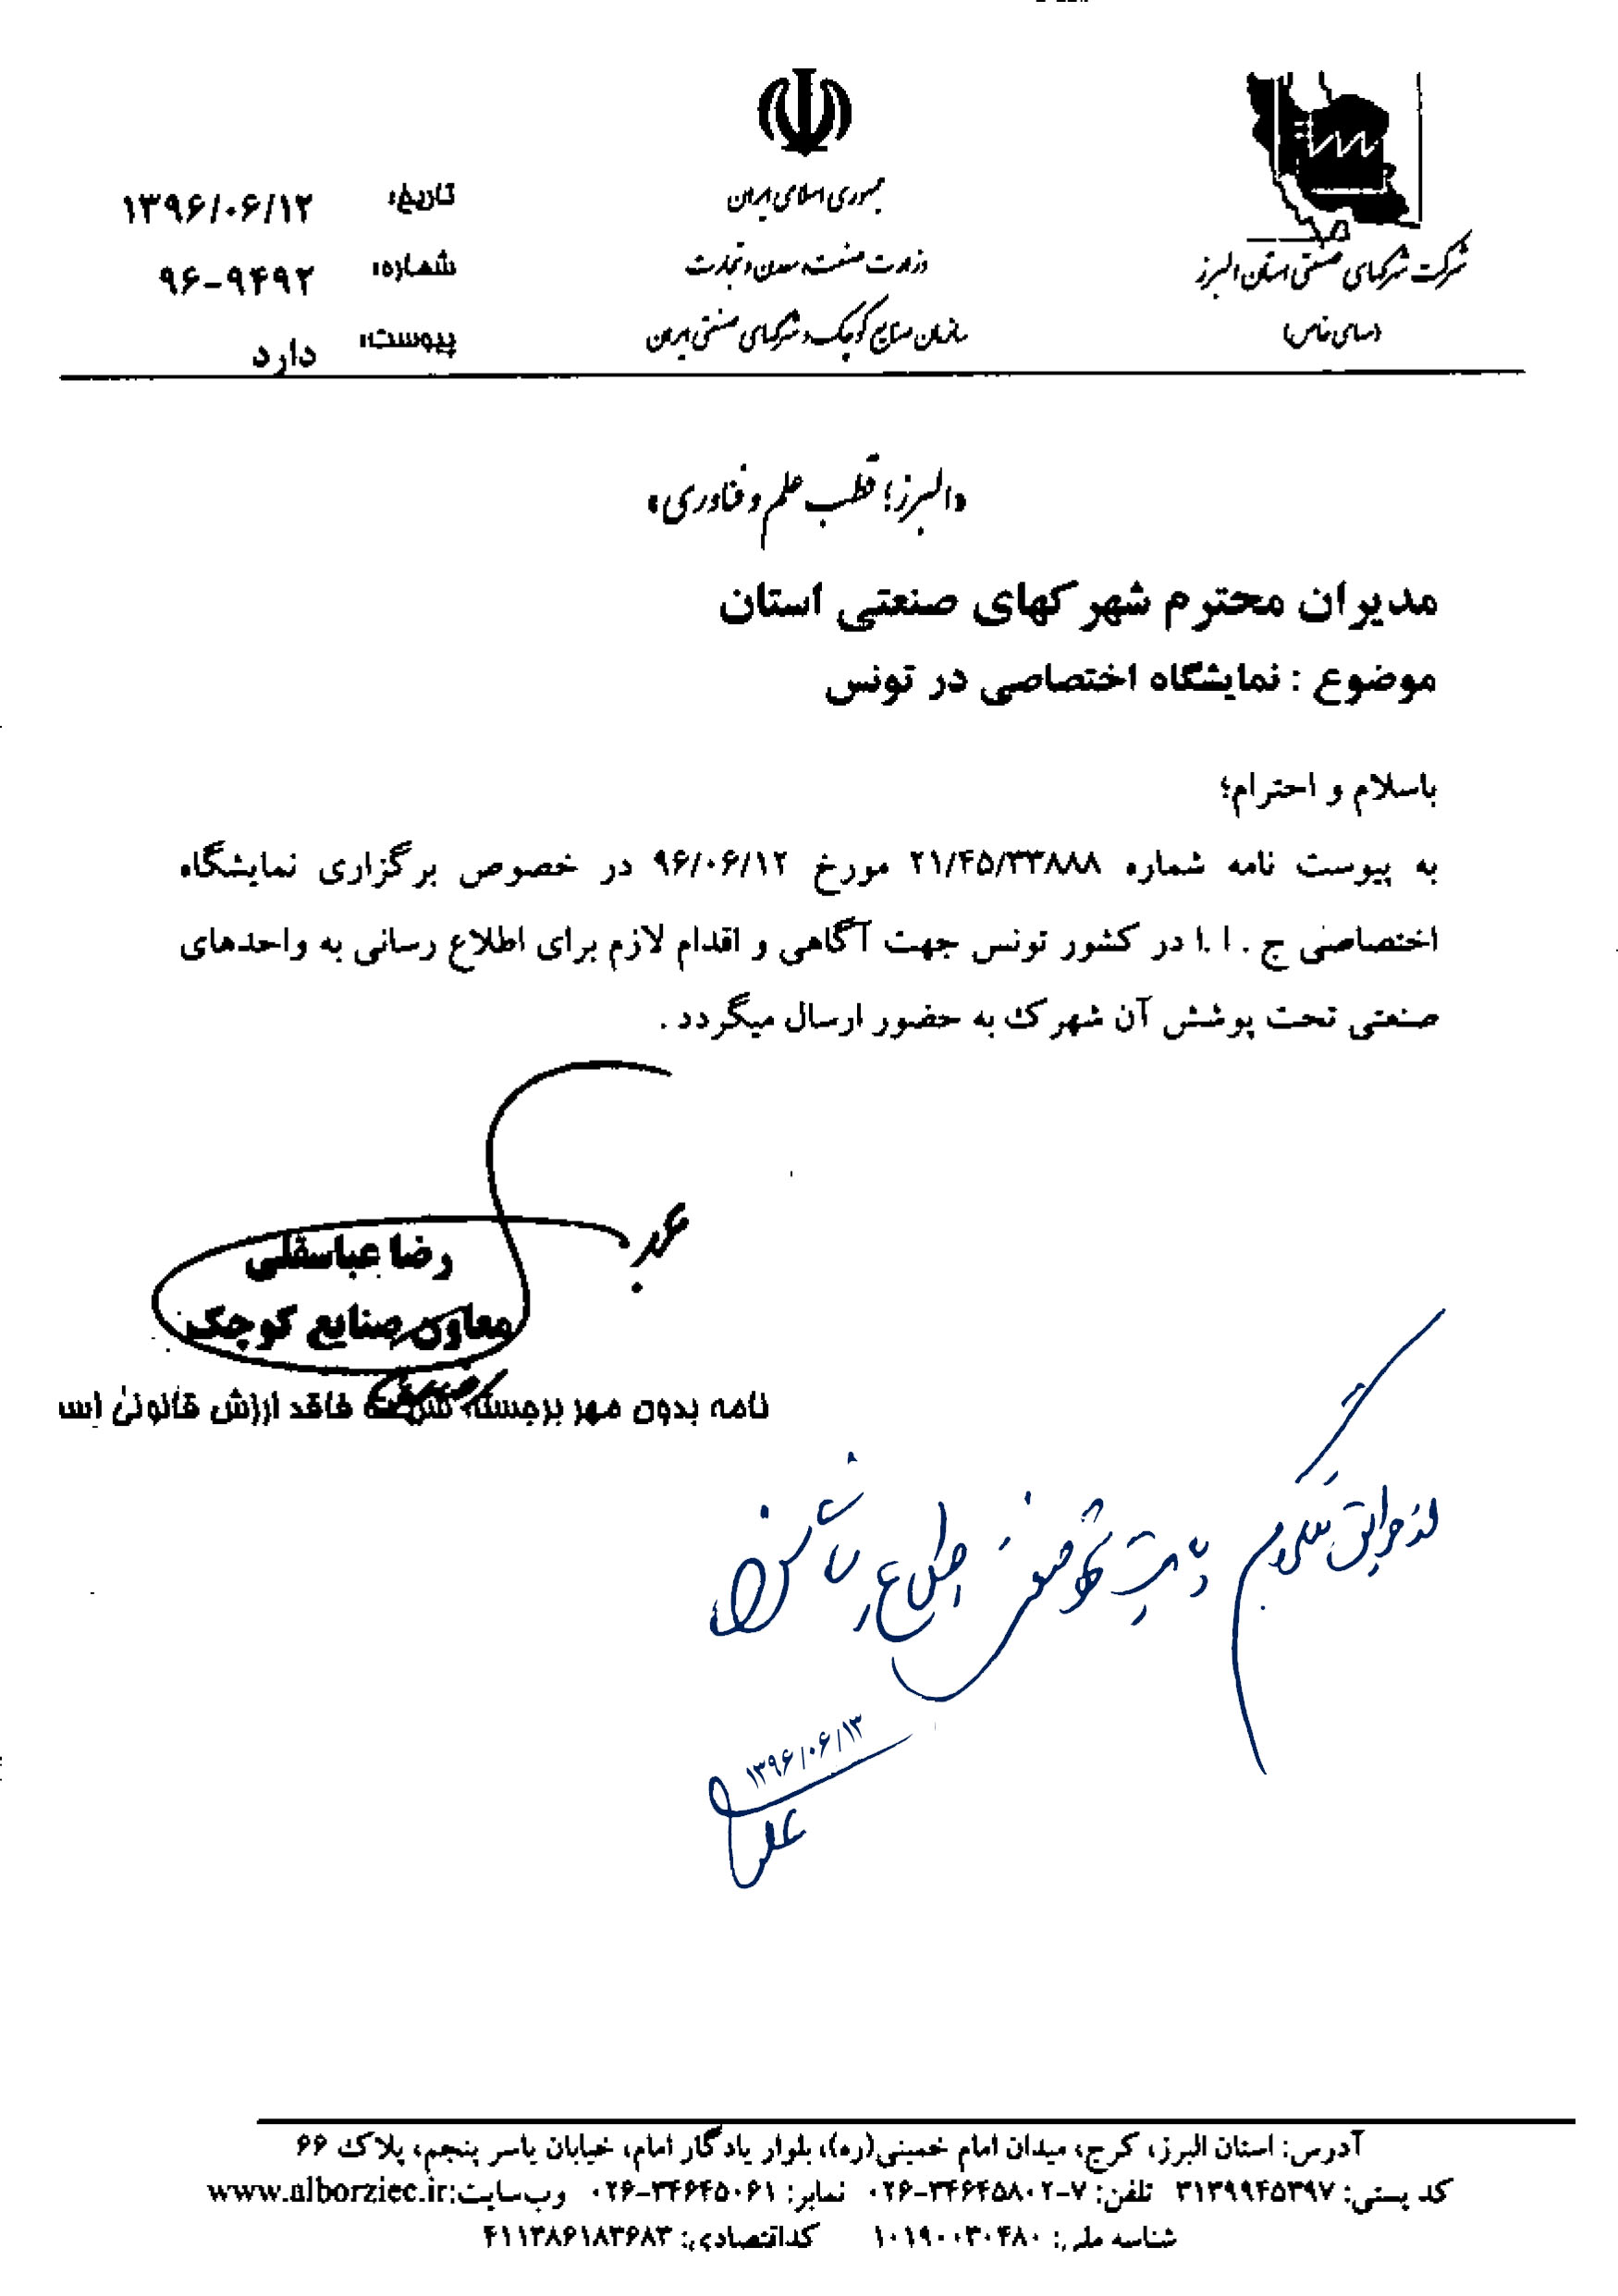 جمهوری اسلامی ایران
وزارت صنعت، معدن و تجارت
سازمان صنایع کوچک و شهرکهای صنعتی ایران
شرکت شهرکهای صنعتی استان البرز
(سهامی خاص)
تاریخ: ۱۳۹۶/۰۶/۱۲
شماره: ۹۶-۹۴۹۲
پیوست: دارد
«البرز؛ قطب علم و فناوری»
مدیران محترم شهرکهای صنعتی استان
موضوع : نمایشگاه اختصاصی در تونس
باسلام و احترام؛
به پیوست نامه شماره ۲۱/۴۵/۳۳۸۸۸ مورخ ۹۶/۰۶/۱۲ در خصوص برگزاری نمایشگاه
اختصاصی ج . ا .ا در کشور تونس جهت آگاهی و اقدام لازم برای اطلاع رسانی به واحدهای
صنعتی تحت پوشش آن شهرک به حضور ارسال میگردد .
رضا عباسقلی
معاون صنایع کوچک
نامه بدون مهر برجسته فاقد ارزش قانونی اس
از طریق تلگرام
اطلاع رسانی شود
۱۳۹۶/۰۶/۱۳
آدرس: استان البرز، کرج، میدان امام خمینی(ره)، بلوار یادگار امام، خیابان یاسر پنجم، پلاک ۶۶
کد پستی: ۳۱۳۹۹۴۵۳۹۷ تلفن: ۷-۰۲۶-۳۴۶۴۵۸۰۲ نمابر: ۰۲۶-۳۴۶۴۵۰۶۱ وب‌سایت:www.alborziec.ir
شناسه ملی: ۱۰۱۹۰۰۳۰۴۸۰ کداقتصادی: ۴۱۱۳۸۶۱۸۳۶۸۳